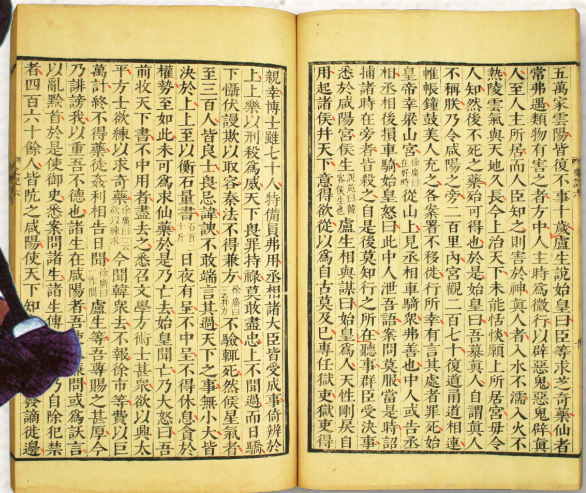 五萬家雲陽皆復不事十歲盧生說始皇曰臣等求芝奇藥仙者
常弗遇類物有害之者方中人主時爲微行以辟惡鬼惡鬼辟眞
人至人主所居而人臣知之則害於神眞人者入水不濡入火不
爇陵雲氣與天地久長今上治天下未能恬倓願上所居宮毋令
人知然後不死之藥殆可得也於是始皇曰吾慕眞人自謂眞人
不稱朕乃令咸陽之旁二百里內宮觀二百七十復道甬道相連
帷帳鐘鼓美人充之各案署不移徙行所幸有言其處者罪死始
皇帝幸梁山宮徐廣曰在好畤從山上見丞相車騎衆弗善也中人或告丞
相丞相後損車騎始皇怒曰此中人泄吾語案問莫服當是時詔
捕諸時在旁者皆殺之自是後莫知行之所在聽事群臣受決事
悉於咸陽宮侯生說苑曰韓客侯生也盧生相與謀曰始皇爲人天性剛戾自
用起諸侯并天下意得欲從以爲自古莫及已專任獄吏獄吏得
親幸博士雖七十人特備員弗用丞相諸大臣皆受成事倚辨於
上上樂以刑殺爲威天下畏罪持祿莫敢盡忠上不聞過而日驕
下懾伏謾欺以取容秦法不得兼方徐廣曰一云并力不驗輒死然候星氣者
至三百人皆良士畏忌諱諛不敢端言其過天下之事無小大皆
決於上上至以衡石量書石百二十斤日夜有呈不中呈不得休息貪於
權勢至如此未可爲求仙藥於是乃亡去始皇聞亡乃大怒曰吾
前收天下書不中用者盡去之悉召文學方術士甚衆欲以興太
平方士欲練以求奇藥徐廣曰一云欲以練求今聞韓衆去不報徐市等費以巨
萬計終不得藥徒姦利相告日聞徐廣曰一作間盧生等吾尊賜之甚厚今
乃誹謗我以重吾不德也諸生在咸陽者吾使廉問或爲訞言
以亂黔首於是使御史悉案問諸生諸生傳乃自除犯禁
者四百六十餘人皆阬之咸陽使天下知發謫徙邊